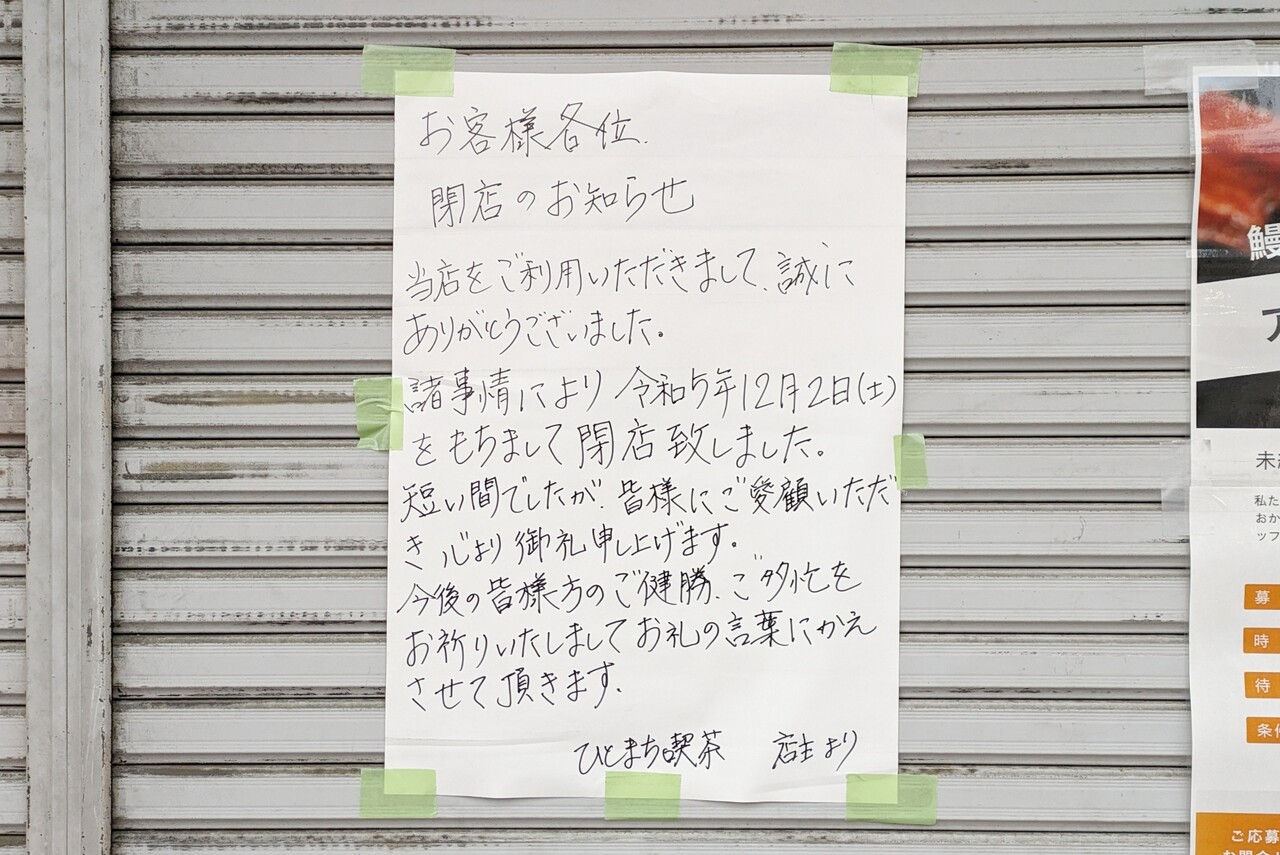 お客様各位.
閉店のお知らせ
当店をご利用いただきまして、誠に
ありがとうございました。
諸事情により令和5年12月2日(土)
をもちまして閉店致しました。
短い間でしたが、皆様にご愛顧いただ
き心より御礼申し上げます。
今後の皆様方のご健勝、ご多忙を
お祈りいたしましてお礼の言葉にかえ
させて頂きます。
ひとまち喫茶 店主より
鰻
ア
未
私た
おか
ップ
募
時
待
条件
ご応募